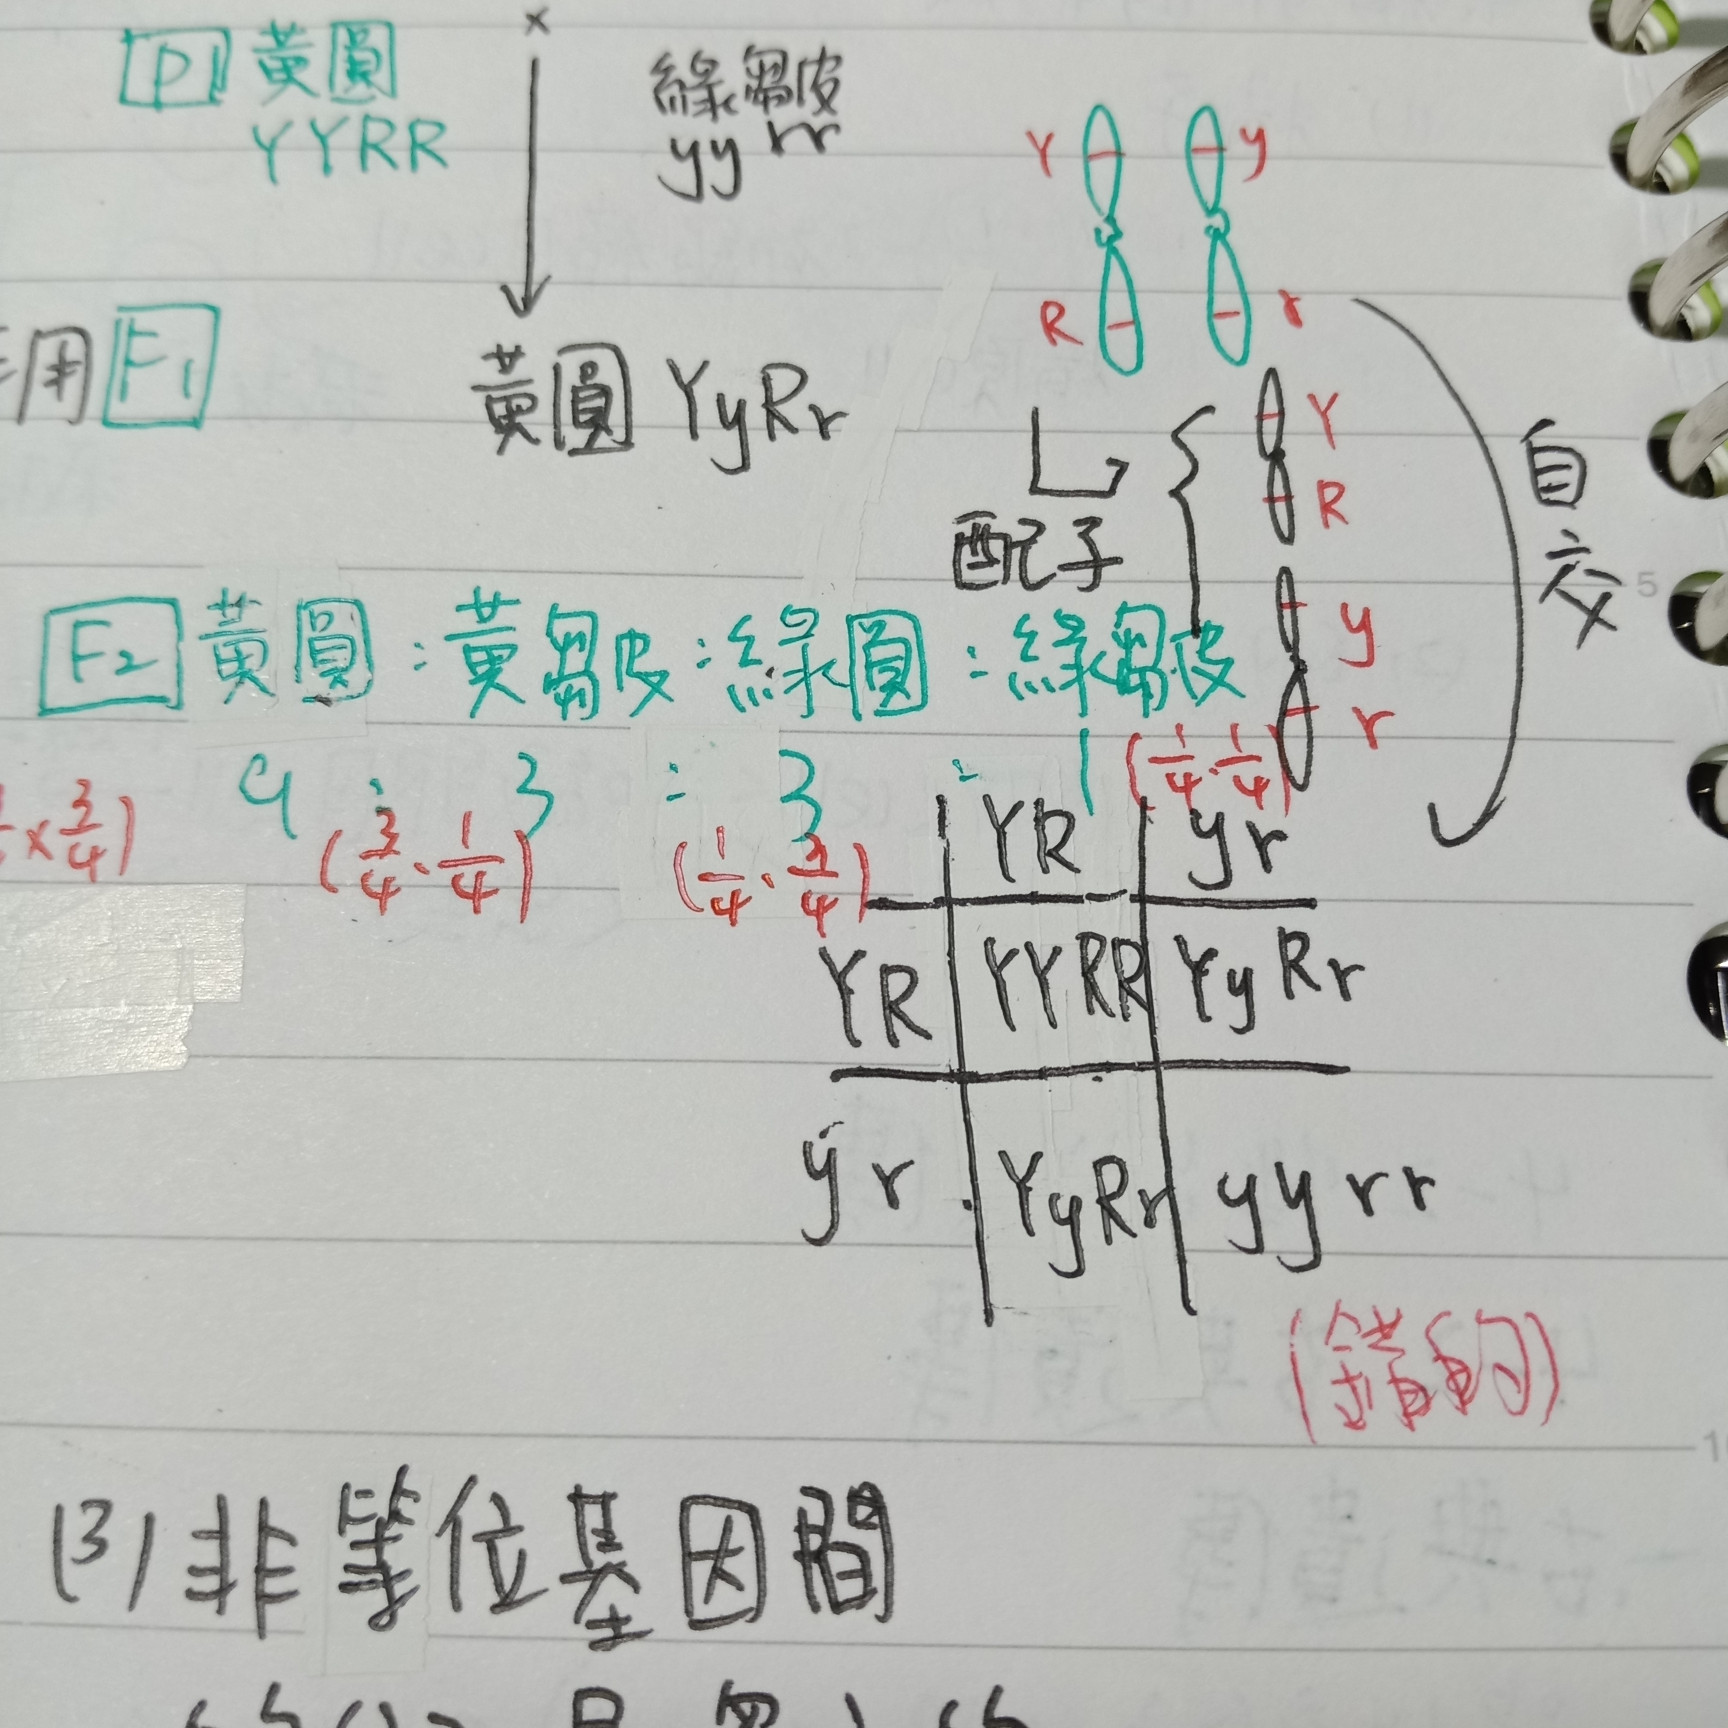 P 黃圓 × 綠皺皮
YYRR yyrr
Y y
R r
用 F1 黃圓 YyRr
配子
Y
R
y
r
自交
F2 黃圓:黃皺皮:綠圓:綠皺皮
9 : 3 : 3 : 1 (1/4·1/4)
×3/4) (3/4·1/4) (1/4·3/4)
YR yr
YR YYRR YyRr
yr YyRr yyrr
(錯的)
(3) 非等位基因間
5